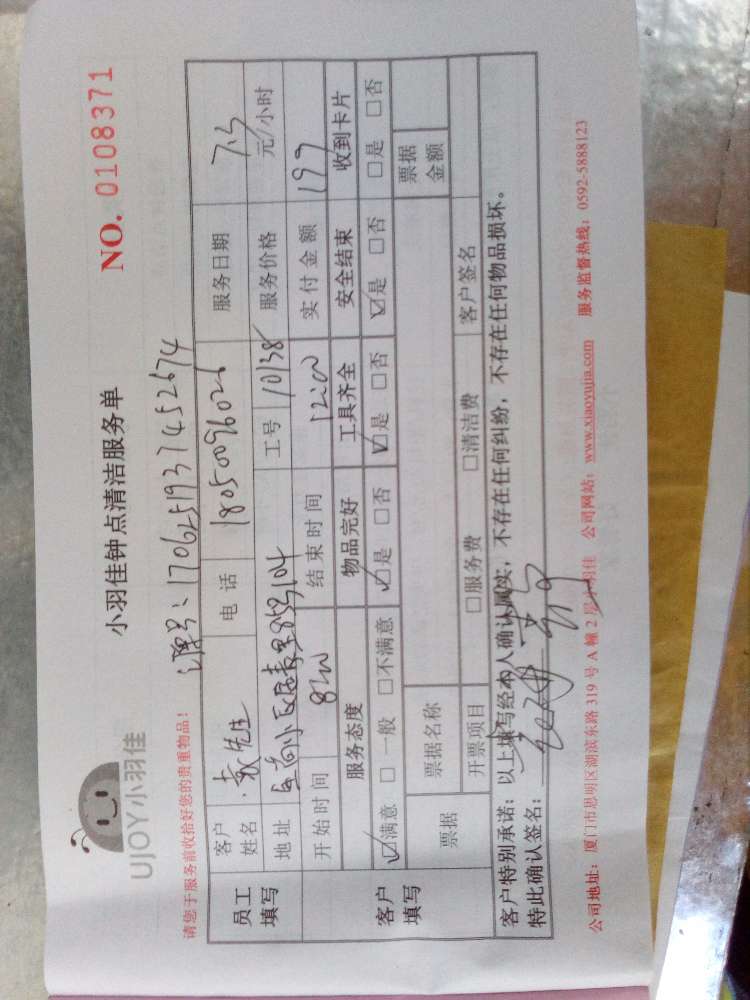 UJOY小羽佳
小羽佳钟点清洁服务单
NO. 0108371
请您于服务前收拾好您的贵重物品!
单号:1706251937452674
员工填写 客户姓名 袁先生 电话 18050096026 服务日期 7.3
地址 小区 853 104 工号 10138 服务价格 元/小时
开始时间 8:00 结束时间 12:00 实付金额 199
客户填写 服务态度 物品完好 工具齐全 安全结束 收到卡片
☑满意 □一般 □不满意 ☑是 □否 ☑是 □否 ☑是 □否 □是 □否
票据 票据名称 票据金额
开票项目 □服务费 □清洁费 客户签名
客户特别承诺:以上填写经本人确认属实,不存在任何纠纷,不存在任何物品损坏。
特此确认签名:
公司地址:厦门市思明区湖滨东路 319 号 A 幢 2 层小羽佳 公司网站:www.xiaoyujia.com 服务监督热线:0592-5888123